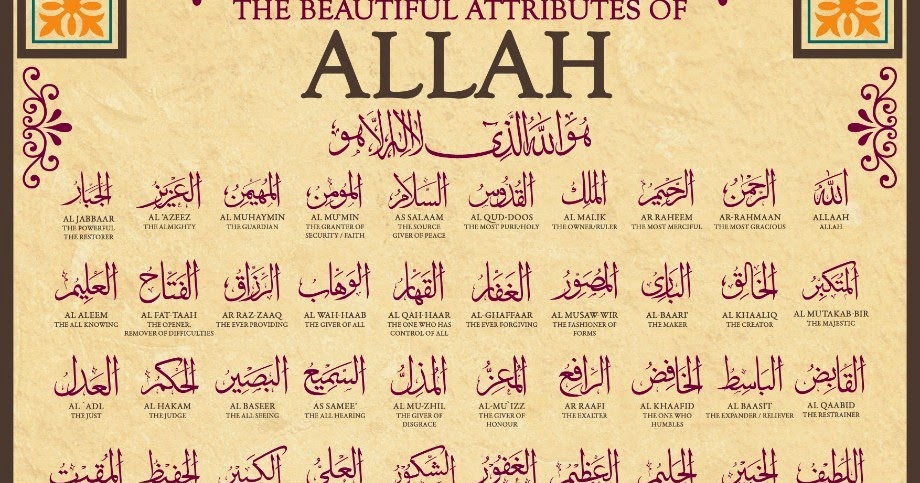 THE BEAUTIFUL ATTRIBUTES OF
ALLAH
هُوَ اللهُ الَّذِي لَا إِلٰهَ إِلَّا هُوَ
الله
ALLAAH
ALLAH
الرحمن
AR-RAHMAAN
THE MOST GRACIOUS
الرحيم
AR RAHEEM
THE MOST MERCIFUL
الملك
AL MALIK
THE OWNER/RULER
القدوس
AL QUD-DOOS
THE MOST PURE/HOLY
السلام
AS SALAAM
THE SOURCE
GIVER OF PEACE
المؤمن
AL MU'MIN
THE GRANTER OF
SECURITY / FAITH
المهيمن
AL MUHAYMIN
THE GUARDIAN
العزيز
AL 'AZEEZ
THE ALMIGHTY
الجبار
AL JABBAAR
THE POWERFUL
THE RESTORER
المتكبر
AL MUTAKAB-BIR
THE MAJESTIC
الخالق
AL KHAALIQ
THE CREATOR
البارئ
AL-BAARI'
THE MAKER
المصور
AL MUSAW-WIR
THE FASHIONER OF
FORMS
الغفار
AL-GHAFFAAR
THE EVER FORGIVING
القهار
AL QAH-HAAR
THE ONE WHO HAS
CONTROL OF ALL
الوهاب
AL WAH-HAAB
THE GIVER OF ALL
الرزاق
AR RAZ-ZAAQ
THE EVER PROVIDING
الفتاح
AL FAT-TAAH
THE OPENER,
REMOVER OF DIFFICULTIES
العليم
AL ALEEM
THE ALL KNOWING
القابض
AL QAABID
THE RESTRAINER
الباسط
AL BAASIT
THE EXPANDER / RELIEVER
الخافض
AL KHAAFID
THE ONE WHO
HUMBLES
الرافع
AR RAAFI
THE EXALTER
المعز
AL-MU`IZZ
THE GIVER OF
HONOUR
المذل
AL MU-ZHIL
THE GIVER OF
DISGRACE
السميع
AS SAMEE'
THE ALL HEARING
البصير
AL BASEER
THE ALL SEEING
الحكم
AL HAKAM
THE JUDGE
العدل
AL-`ADL
THE JUST
اللطيف
الخبير
الحليم
العظيم
الغفور
الشكور
العلي
الكبير
الحفيظ
المقيت